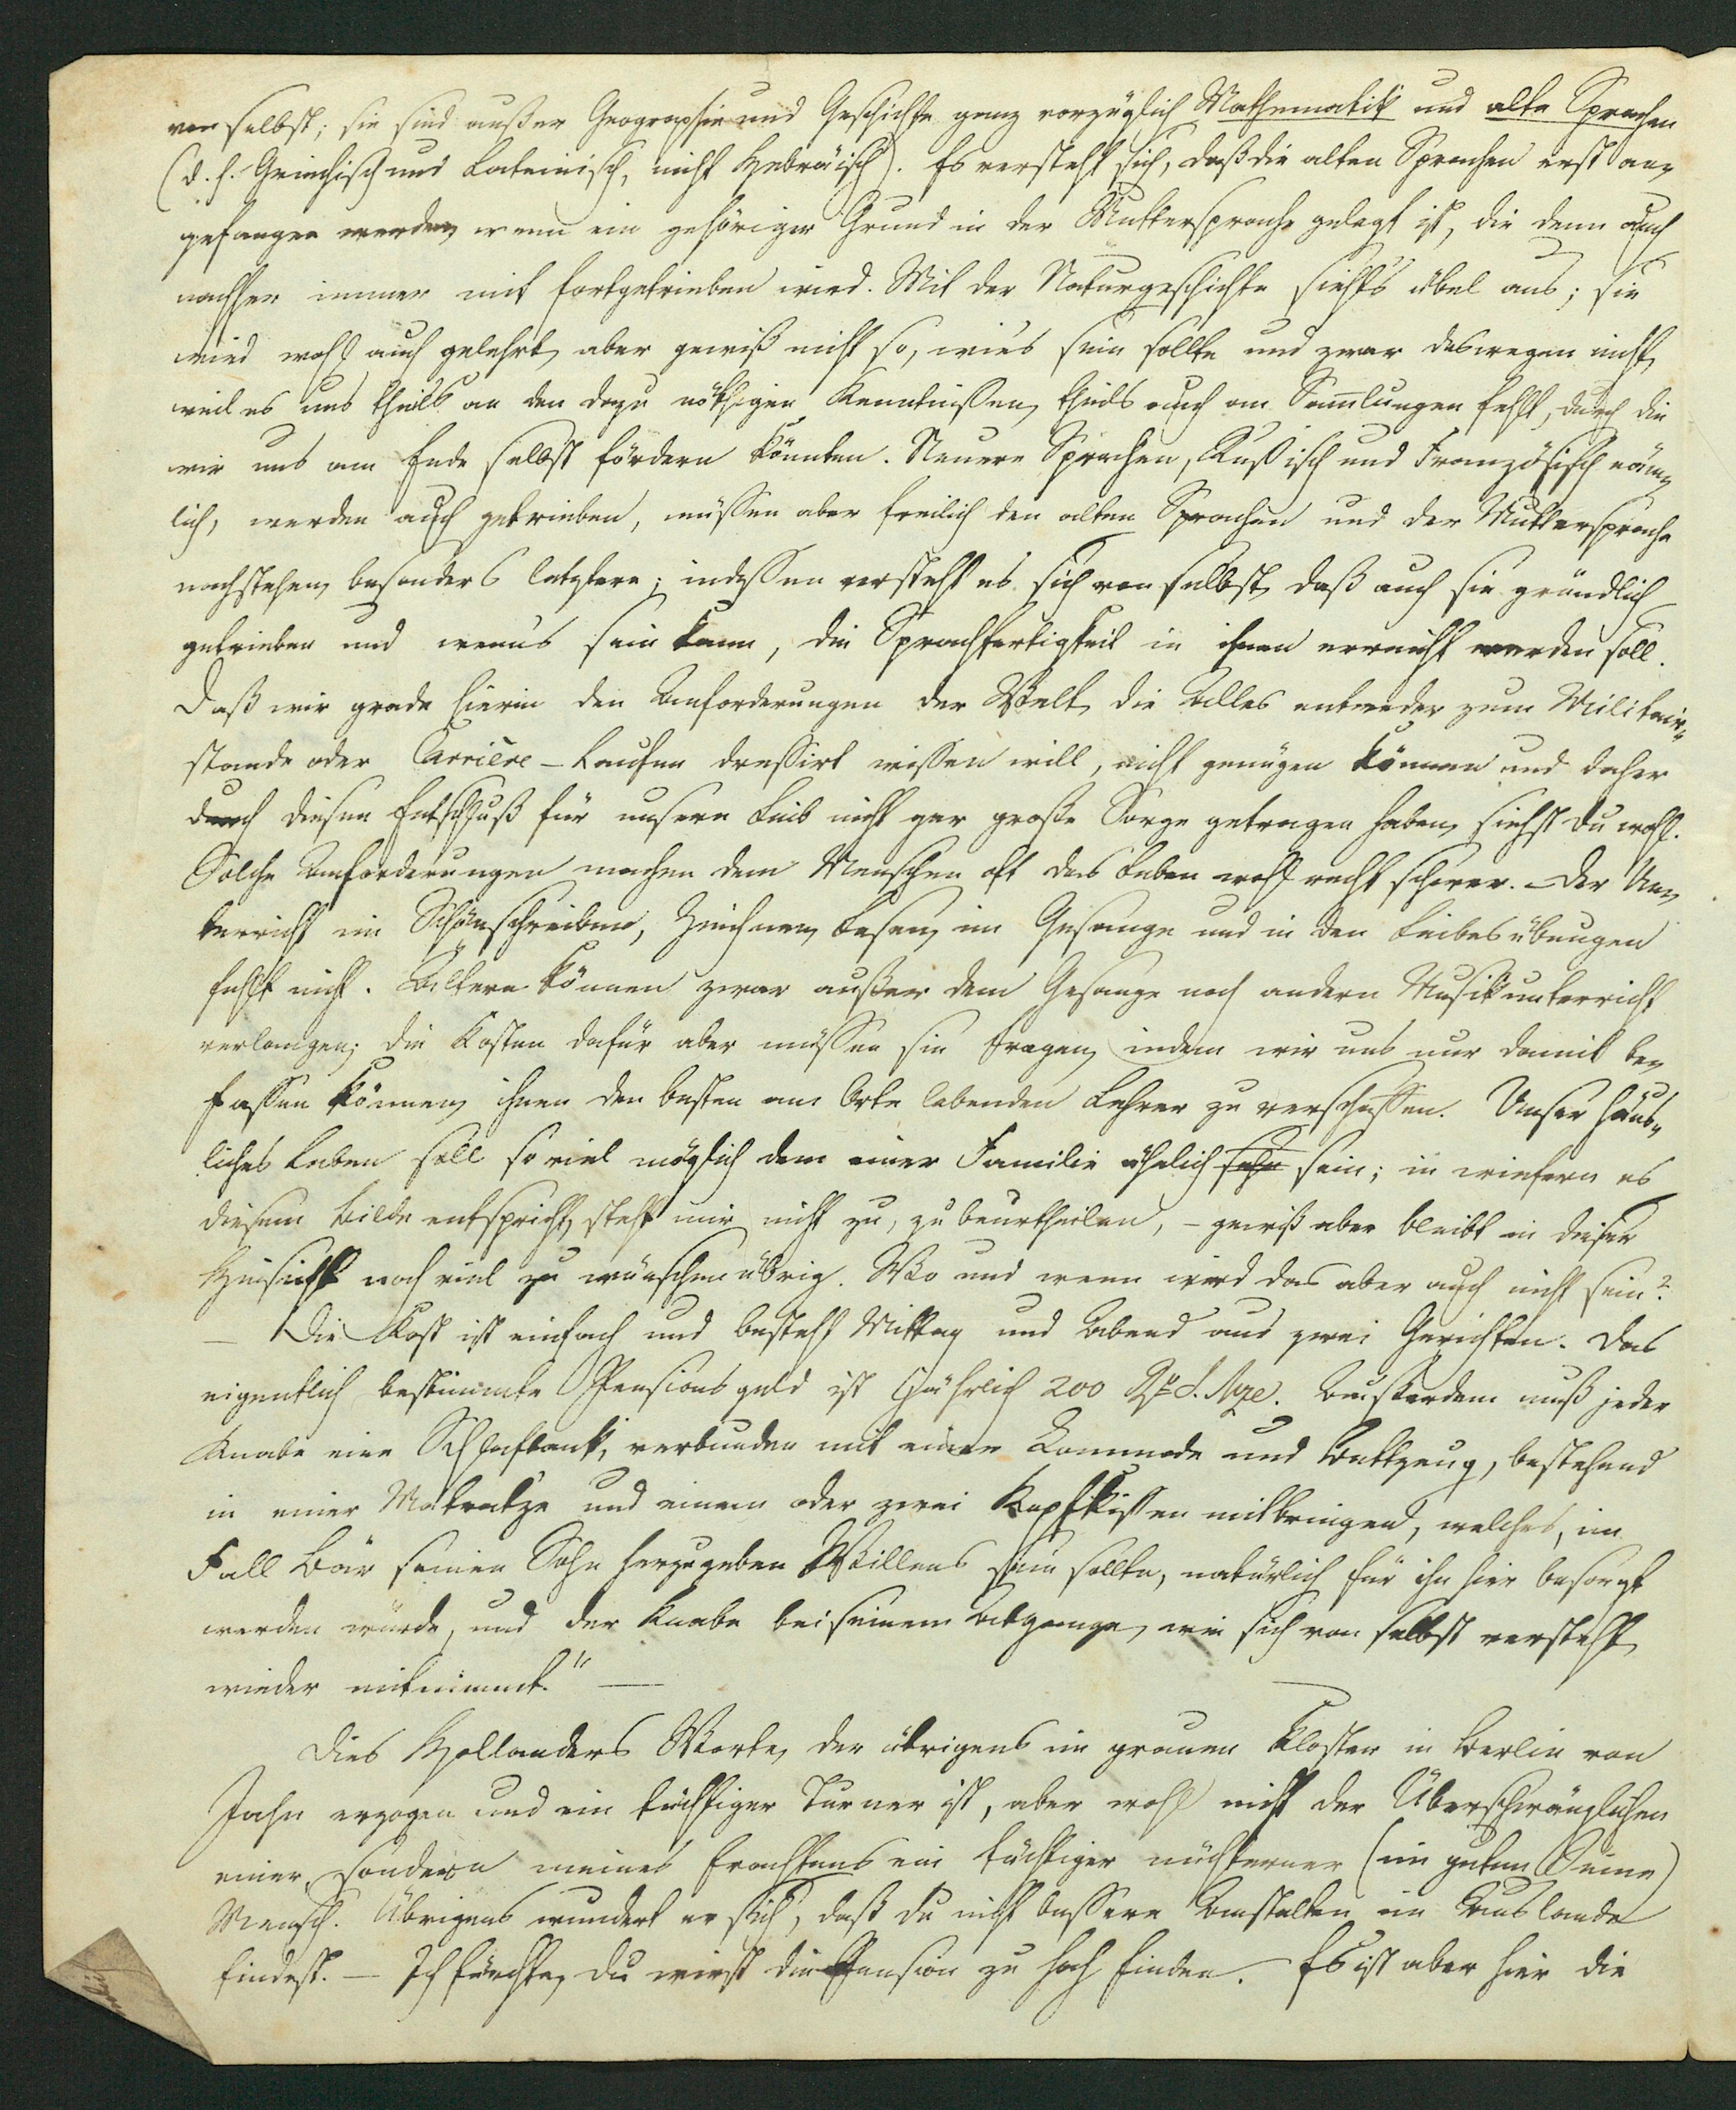 von selbst; sie sind außer Geographie und Geschichte ganz vorzüglich Mathematik und alte Sprachen
(d. h. Griechisch und Lateinisch, nicht Hebräisch). Es versteht sich, daß die alten Sprachen erst an-
gefangen werden, wenn ein gehöriger Grund in der Muttersprache gelegt ist, die denn auch
nachher immer mit fortgetrieben wird. Mit der Naturgeschichte sieht's übel aus; sie
wird wohl auch gelehrt, aber gewiß nicht so, wie's sein sollte und zwar deswegen nicht,
weil es uns theils an den dazu nöthigen Kenntnißen, theils auch an Sam̅lungen fehlt, durch die
wir uns am Ende selbst fördern könnten. Neuere Sprachen, Rußisch und Französisch näm-
lich, werden auch getrieben, müßen aber freilich den alten Sprachen und der Muttersprache
nachstehen, besonders letztere; indeßen versteht es sich von selbst, daß auch sie gründlich
getrieben und wenn's sein kann, die Sprachfertigkeit in ihnen erreicht werden soll.
Daß wir grade hierin den Anforderungen der Welt, die Alles entweder zum Militair-
stande oder Carrière-Laufen dressirt wißen will, nicht genügen können und daher
durch diesen Entschluß für unsern Leib nicht gar große Sorge getragen haben, siehst du wohl.
Solche Anforderungen machen dem Menschen oft das Leben wohl recht schwer. - Der Un-
terricht im Schönschreiben, Zeichnen, Lesen, im Gesange und in den Leibesübungen
fehlt nicht. Ältern können zwar außer dem Gesange noch andern Musikunterricht
verlangen; die Kosten dafür aber müßen sie tragen, indem wir uns nur damit be-
faßen können, ihnen den besten am Orte lebenden Lehrer zu verschaffen. Unser häus-
liches Leben soll so viel möglich dem einer Familie ähnlich sein; in wiefern es
diesem Bilde entspricht, steht mir nicht zu, zu beurtheilen, - gewiß aber bleibt in dieser
Hinsicht noch viel zu wünschen übrig. Wo und wenn wird das aber auch nicht sein?
- Die Kost ist einfach und besteht Mittag und Abend aus zwei Gerichten. Das
eigentlich bestimmte Pensionsgeld ist jährlich 200 S. Mze. Außerdem muß jeder
Knabe eine Schlafbank, verbunden mit einer Kommode und Bettzeug, bestehend
in einer Matratze und einem oder zwei Kopfkißen mitbringen, welches, im
Fall Bär seinen Sohn herzugeben Willens sein sollte, natürlich für ihn hier besorgt
werden würde, und der Knabe bei seinem Abgange, wie sich von selbst versteht,
wieder mitnimmt." -
Dies Hollanders Worte, der übrigens im grauen Kloster in Berlin von
Jahn erzogen und ein tüchtiger Turner ist, aber wohl nicht der Überschwänglichen
einer, sondern meines Erachtens ein tüchtiger nüchterner (im guten Sinne)
Mensch. Übrigens wundert er sich, daß du nicht beßere Anstalten im Auslande
findest. - Ich fürchte, du wirst die Pension zu hoch finden. - Es ist aber hier die